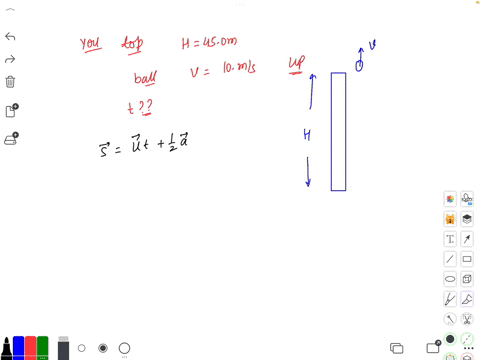 You top H = 45.0m
ball V = 10. m/s up
t ??
S⃗ = u⃗t + ½ a⃗
V
H